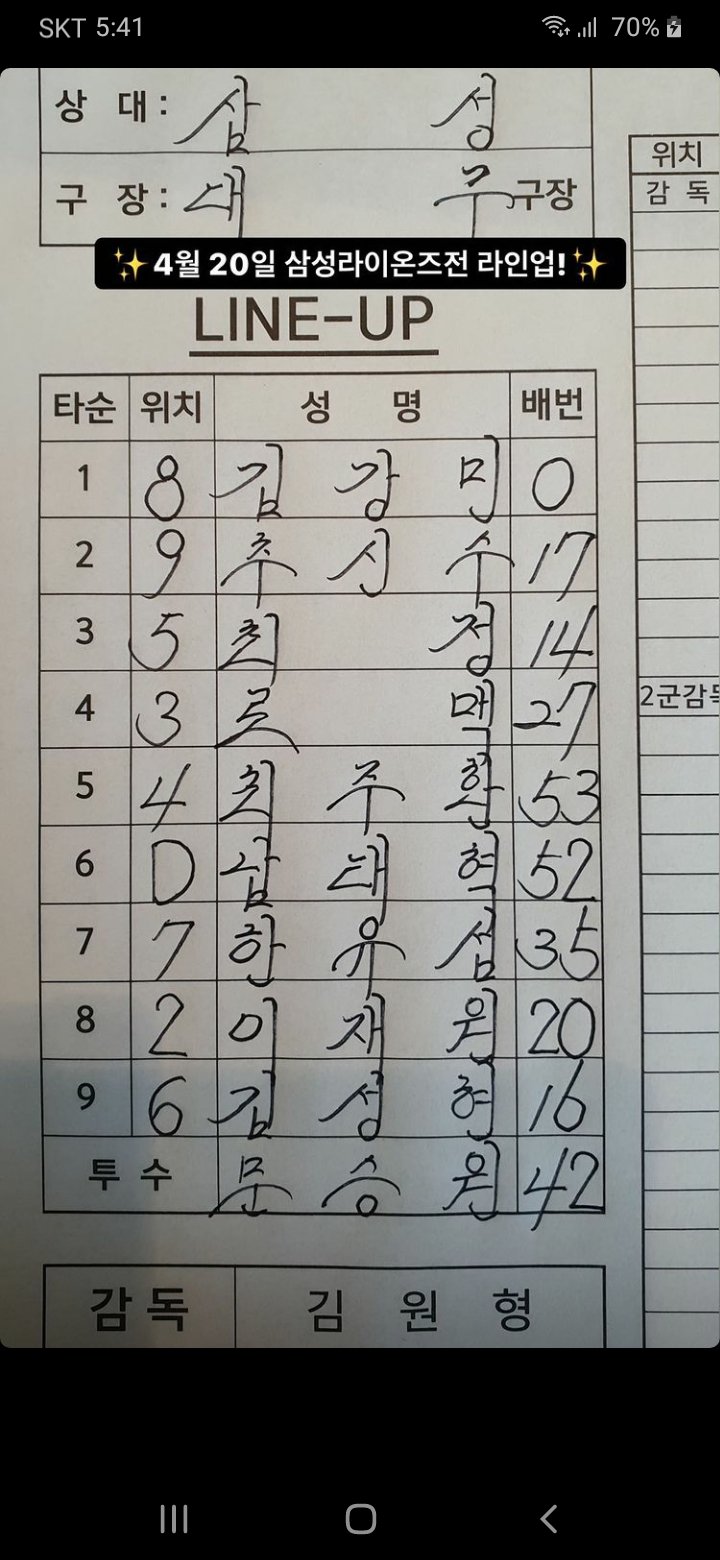 SKT 5:41 70%
상 대 : 삼 성
구 장 : 대 구 구장
✨4월 20일 삼성라이온즈전 라인업!✨
LINE-UP
타순 위치 성 명 배번
1 8 김 강 민 0
2 9 추 신 수 17
3 5 최 정 14
4 3 로 맥 27
5 4 최 주 환 53
6 D 남 태 혁 52
7 7 한 유 섬 35
8 2 이 재 원 20
9 6 김 성 현 16
투 수 문 승 원 42
감 독 김 원 형
위치
감 독
2군감독